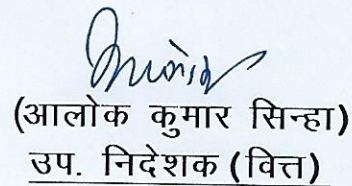 (आलोक कुमार सिन्हा)
उप. निदेशक (वित्त)